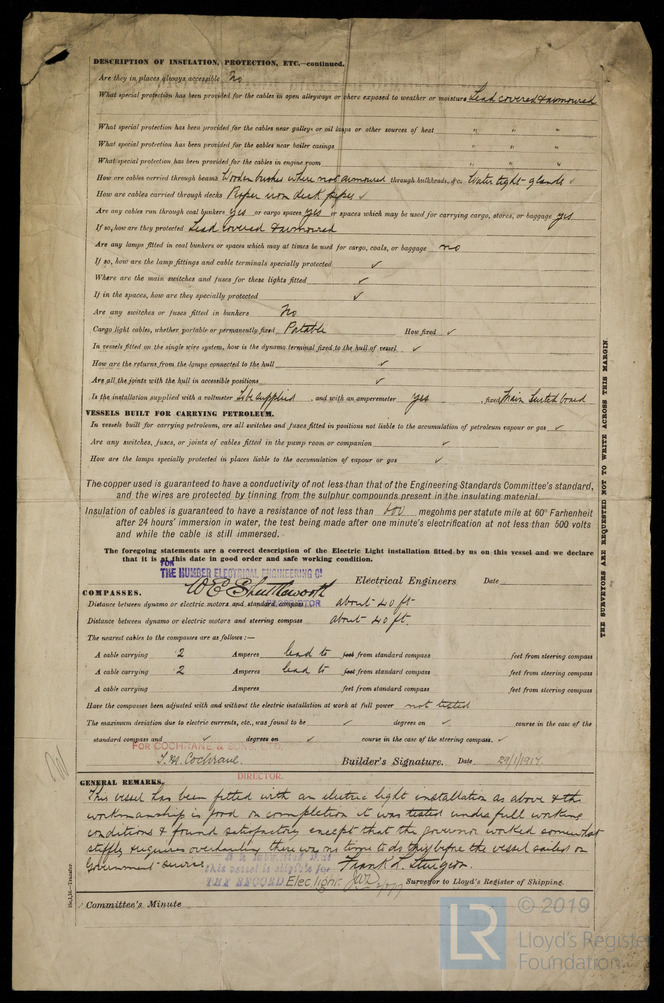 DESCRIPTION OF INSULATION, PROTECTION, ETC.—continued.
Are they in places always accessible No
What special protection has been provided for the cables in open alleyways or where exposed to weather or moisture Lead covered & armoured
What special protection has been provided for the cables near galleys or oil lamps or other sources of heat " " "
What special protection has been provided for the cables near boiler casings " " "
What special protection has been provided for the cables in engine room " " "
How are cables carried through beams Wooden bushes where not armoured through bulkheads, &c. Water tight glands ✓
How are cables carried through decks Proper iron deck pipes ✓
Are any cables run through coal bunkers yes or cargo spaces yes or spaces which may be used for carrying cargo, stores, or baggage yes
If so, how are they protected Lead covered & armoured
Are any lamps fitted in coal bunkers or spaces which may at times be used for cargo, coals, or baggage no
If so, how are the lamp fittings and cable terminals specially protected ✓
Where are the main switches and fuses for these lights fitted ✓
If in the spaces, how are they specially protected ✓
Are any switches or fuses fitted in bunkers No
Cargo light cables, whether portable or permanently fixed Portable How fixed ✓
In vessels fitted on the single wire system, how is the dynamo terminal fixed to the hull of vessel ✓
How are the returns from the lamps connected to the hull ✓
Are all the joints with the hull in accessible positions ✓
Is the installation supplied with a voltmeter To be supplied , and with an amperemeter yes , fixed Main Switchboard
VESSELS BUILT FOR CARRYING PETROLEUM.
In vessels built for carrying petroleum, are all switches and fuses fitted in positions not liable to the accumulation of petroleum vapour or gas ✓
Are any switches, fuses, or joints of cables fitted in the pump room or companion ✓
How are the lamps specially protected in places liable to the accumulation of vapour or gas ✓
The copper used is guaranteed to have a conductivity of not less than that of the Engineering Standards Committee's standard,
and the wires are protected by tinning from the sulphur compounds present in the insulating material.
Insulation of cables is guaranteed to have a resistance of not less than 600 megohms per statute mile at 60° Farhenheit
after 24 hours' immersion in water, the test being made after one minute's electrification at not less than 500 volts
and while the cable is still immersed.
The foregoing statements are a correct description of the Electric Light installation fitted by us on this vessel and we declare
that it is at this date in good order and safe working condition.
FOR
THE HUMBER ELECTRICAL ENGINEERING Co
W E Shuttleworth Electrical Engineers Date
DIRECTOR
COMPASSES.
Distance between dynamo or electric motors and standard compass about 40 ft
Distance between dynamo or electric motors and steering compass about 40 ft.
The nearest cables to the compasses are as follows:—
A cable carrying 2 Amperes lead to feet from standard compass feet from steering compass
A cable carrying 2 Amperes lead to feet from standard compass feet from steering compass
A cable carrying Amperes feet from standard compass feet from steering compass
Have the compasses been adjusted with and without the electric installation at work at full power not tested
The maximum deviation due to electric currents, etc., was found to be ✓ degrees on ✓ course in the case of the
standard compass and ✓ degrees on ✓ course in the case of the steering compass. ✓
FOR COCHRANE & SONS, LTD.
T. H. Cochrane. Builder's Signature. Date 29/1/1917.
DIRECTOR.
GENERAL REMARKS.
This vessel has been fitted with an electric light installation as above & the
workmanship is good on completion it was tested under full working
conditions & found satisfactory except that the governor worked somewhat
stiffly & requires overhauling there was no time to do this before the vessel sailed on
Government service.
It is submitted that
this vessel is eligible for
THE RECORD Elec light. Frank L. Sturgeon.
Surveyor to Lloyd's Register of Shipping.
Committee's Minute
THE SURVEYORS ARE REQUESTED NOT TO WRITE ACROSS THIS MARGIN.
LR © 2019
Lloyd's Register
Foundation